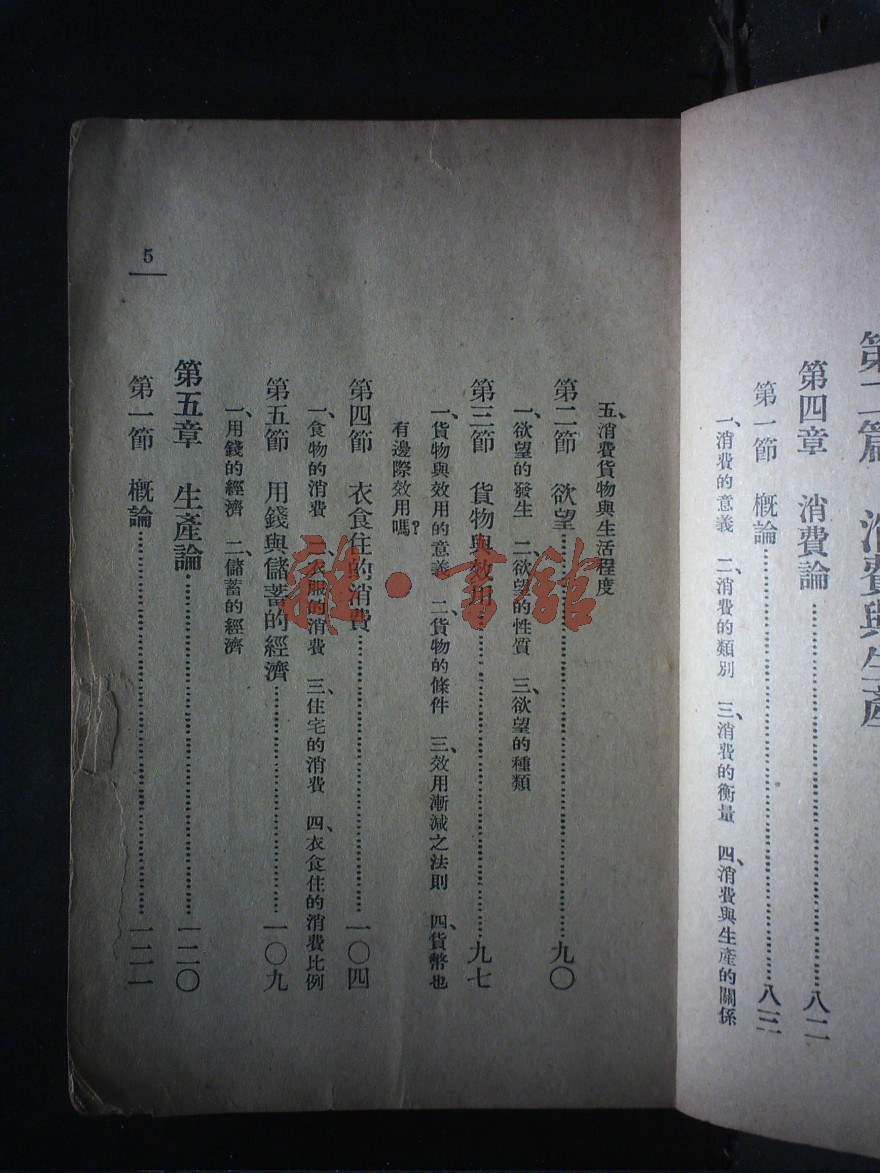 第二篇 消費與生產
第四章 消費論…………八二
第一節 概論…………八三
一、消費的意義 二、消費的類別 三、消費的衡量 四、消費與生產的關係
五、消費貨物與生活程度
第二節 欲望…………九〇
一、欲望的發生 二、欲望的性質 三、欲望的種類
第三節 貨物與效用…………九七
一、貨物與效用的意義 二、貨物的條件 三、效用漸減之法則 四、貨幣也
有邊際效用嗎?
第四節 衣食住的消費…………一〇四
一、食物的消費 二、衣服的消費 三、住宅的消費 四、衣食住的消費比例
第五節 用錢與儲蓄的經濟…………一〇九
一、用錢的經濟 二、儲蓄的經濟
第五章 生產論…………一二〇
第一節 概論…………一二一
5
雜·書館